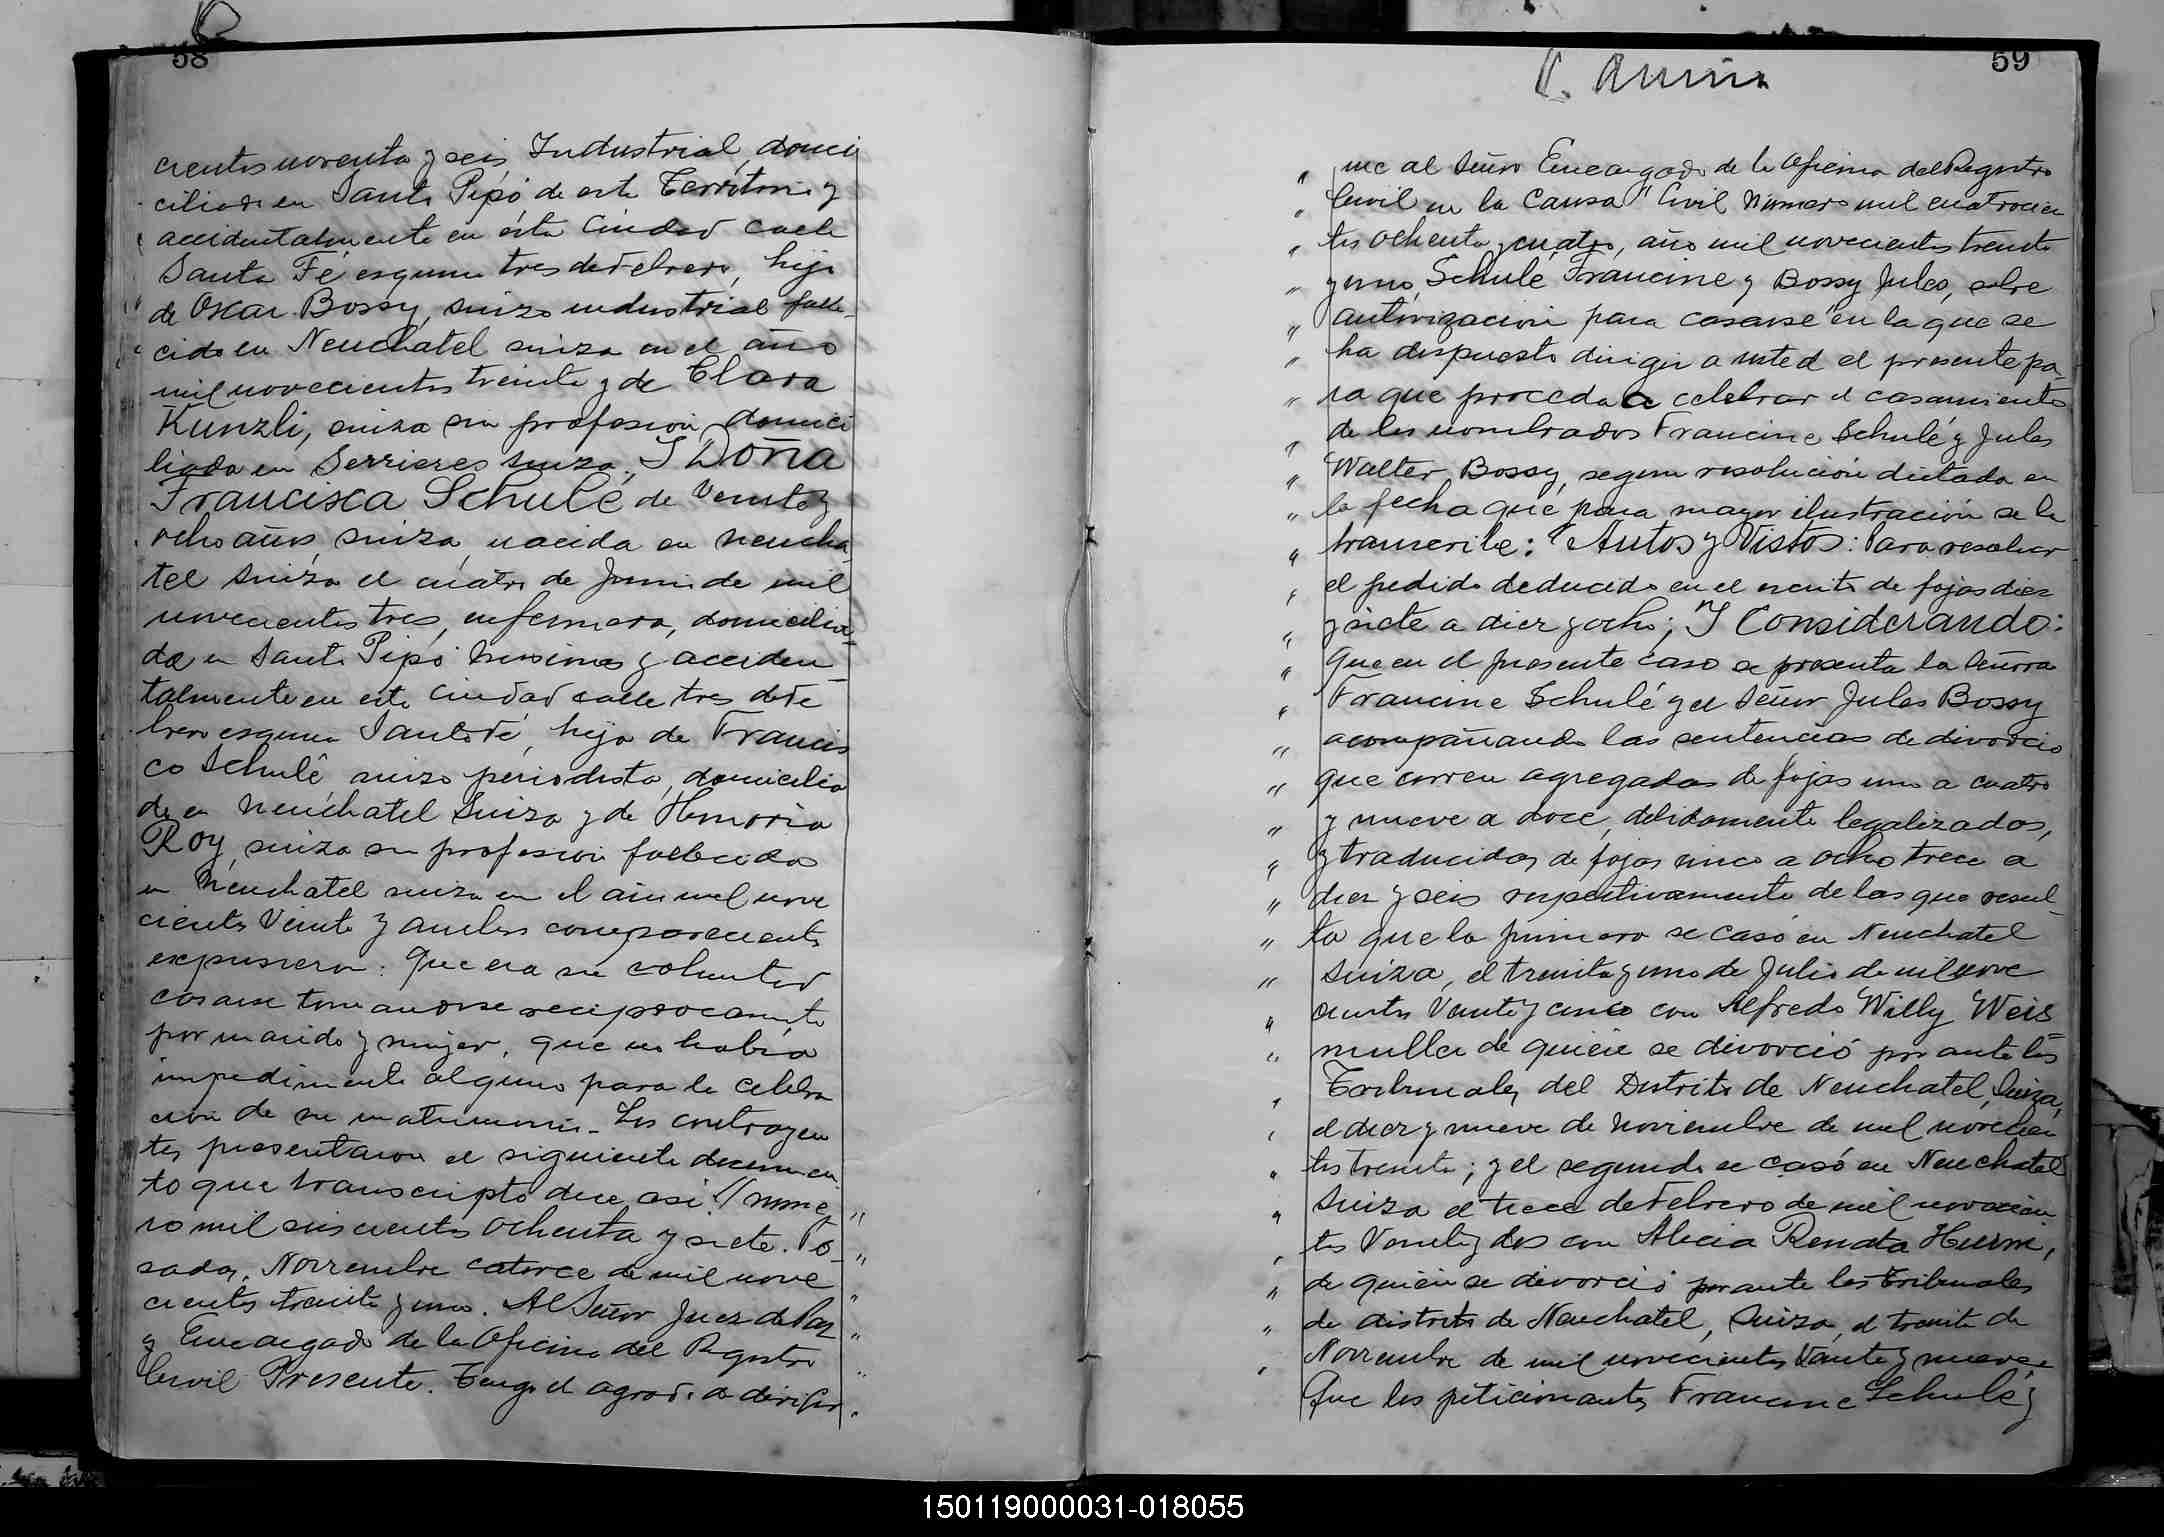 58
cientos noventa y seis, Industrial, domi
ciliado en Santo Pipó de este Territorio y
accidentalmente en ésta Ciudad calle
Santa Fé esquina tres de Febrero, hijo
de Oscar Bossy, suizo industrial falle
cido en Neuchatel suiza en el año
mil novecientos treinta y de Clara
Kunzli, suiza sin profesion, domici
liada en Serrieres suiza; Y Doña
Francisca Schulé de Veinte y
ocho años, suiza, nacida en Neucha
tel Suiza el cuatro de Junio de mil
novecientos tres, enfermera, domicilia
da en Santo Pipó Misiones y acciden
talmente en esta Ciudad calle tres de Fe
brero esquina Santa Fé, hija de Francis
co Schulé suizo periodista, domicilia
do en Neuchatel Suiza y de Honoria
Roy, suiza sin profesion fallecida
en Neuchatel suiza en el año mil nove
cientos Veinte y ambos comparecientes
expusieron: Que era su voluntad
casarse tomandose reciprocamente
por marido y mujer, que no habia
impedimento alguno para la celebra
cion de su matrimonio. Los contrayen
tes presentaron el siguiente documen
to que transcripto dice asi: "(nume
ro mil seiscientos ochenta y siete. Po
sadas, Noviembre catorce de mil nove
cientos treinta y uno. Al Señor Juez de Paz
y Encargado de la Oficina del Registro
Civil Presente. Tengo el agrado de dirigir
59
me al Señor Encargado de la Oficina del Registro
Civil en la Causa "Civil Número mil cuatrocien
tos ochenta y cuatro, año mil novecientos treinta
y uno, Schulé Francine y Bossy Jules, sobre
autorizacion para casarse" en la que se
ha dispuesto dirigir a usted el presente pa
ra que proceda a celebrar el casamiento
de los nombrados Francine Schulé y Jules
Walter Bossy, segun resolución dictada en
la fecha que para mayor ilustración se le
transcribe: "Autos y Vistos: Para resolver
el pedido deducido en el escrito de fojas diez
y siete a diez y ocho; Y Considerando:
Que en el presente caso se presenta la Señora
Francine Schulé y el Señor Jules Bossy
acompañando las sentencias de divorcio
que corren agregadas de fojas uno a cuatro
y nueve a doce, debidamente legalizados,
y traducidas de fojas cinco a ocho trece a
diez y seis respectivamente de las que resul
ta que la primera se casó en Neuchatel
Suiza, el treinta y uno de Julio de mil nove
cientos Veinte y cinco con Alfredo Willy Weis
muller de quien se divorció por ante los
Tribunales del Distrito de Neuchatel, Suiza,
el diez y nueve de Noviembre de mil novecien
tos treinta; y el segundo se casó en Neuchatel
Suiza el trece de Febrero de mil novecien
tos Veinte y dos con Alicia Renata Hurni,
de quien se divorció por ante los tribunales
de distrito de Neuchatel, Suiza, el treinta de
Noviembre de mil novecientos Veinte y nueve
Que los peticionantes Francine Schulé y
150119000031-018055